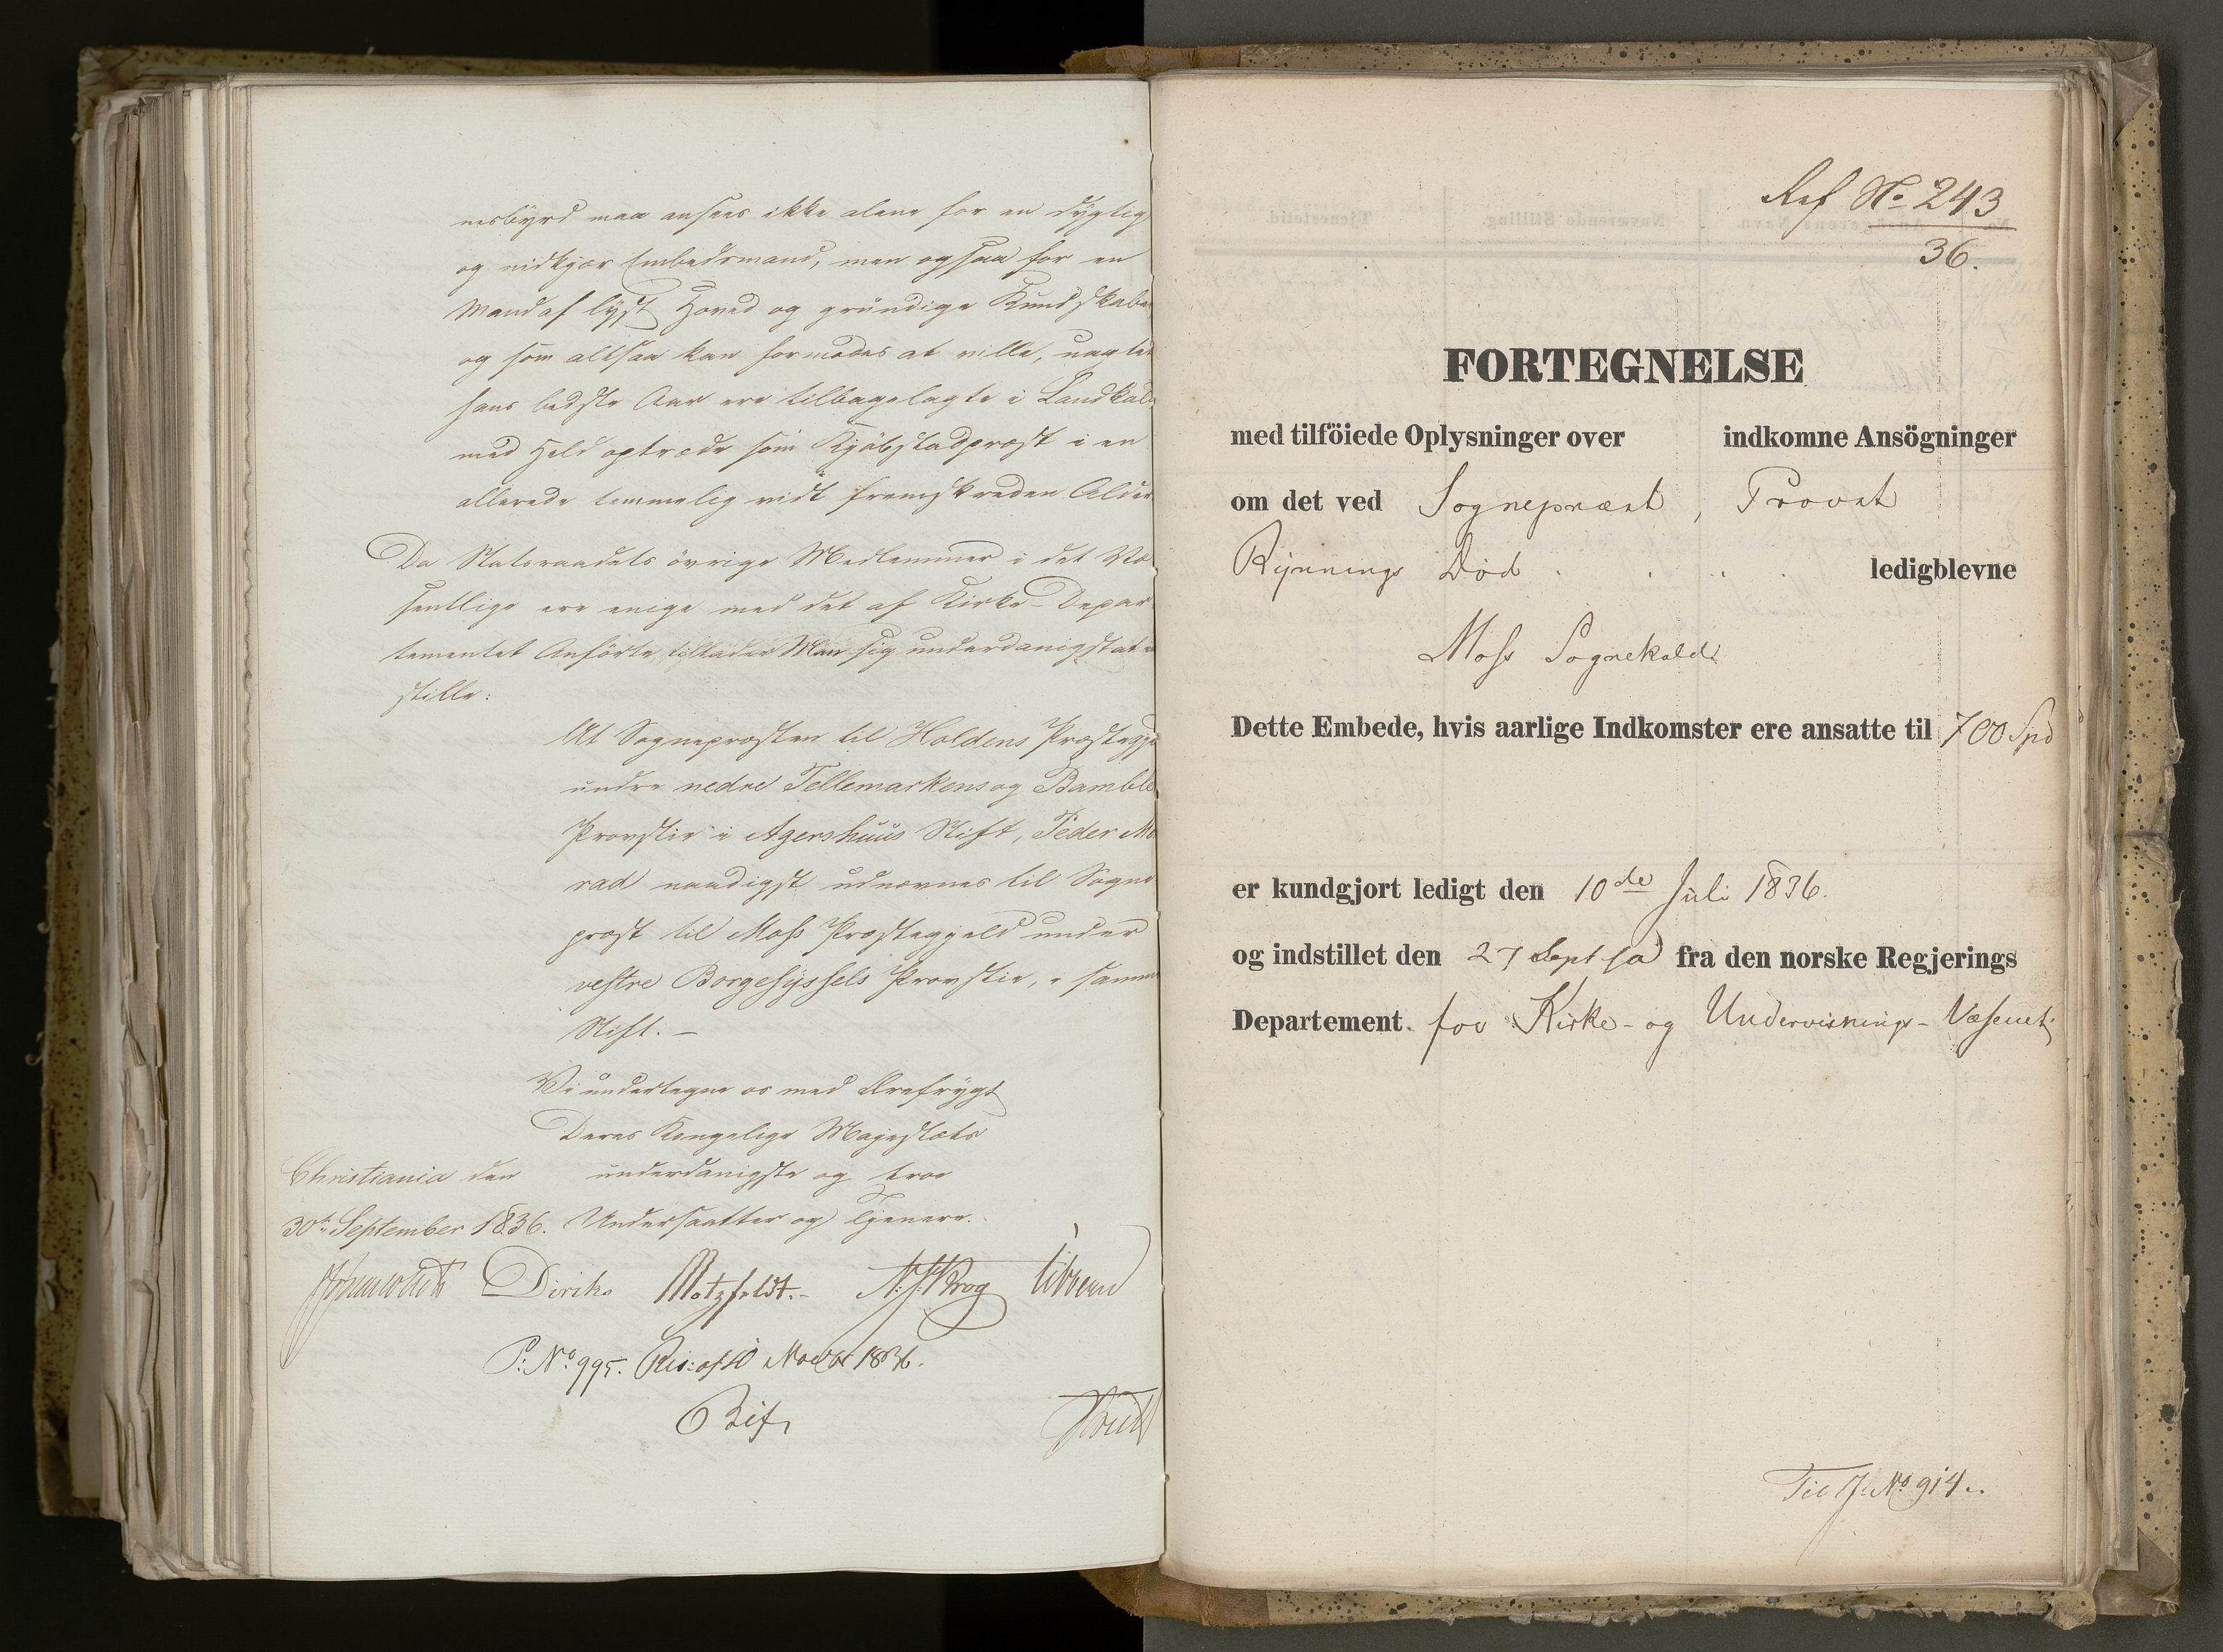 nesbyrd maa ansees ikke alene for en dygtig
og nidkjær Embedsmand, men ogsaa for en
Mand af lyst Hoved og grundige Kundskaber
og som altsaa kan formodes at ville, uagtet
hans bedste Aar ere tilbagelagte i Landkald
med Held optræde som Kjøbstadpræst i en
allerede temmelig vidt fremskreden Alder
Da Statsraadets øvrige Medlemmer i det Væ
sentlige ere enige med det af Kirke-Depar
tementet Anførte, tillader Man sig underdanigst at ind
stille:
At Sognepræsten til Holdens Præstegje
under nedre Tellemarkens og Bamble
Provstie i Agershuus Stift, Peder Mo
rad naadigst udnævnes til Sogne
præst til Moss Præstegjeld under
vestre Borgesyssels Provstie, i samme
Stift. —
Vi undertegne os med Ærefrygt
Deres Kongelige Majestæts
Christiania den underdanigste og troe
30te September 1836. Undersaatter og Tjenere.
Diriks Motzfeldt. N. J. Krog Vibe
P: No 995. Res: af 10 Novbr 1836.
Ref No 243
36.
FORTEGNELSE
med tilföiede Oplysninger over indkomne Ansögninger
om det ved Sognepræst, Provst
Rynnings Död ledigblevne
Moss Sognekald
Dette Embede, hvis aarlige Indkomster ere ansatte til 700 Spd
er kundgjort ledigt den 10de Juli 1836.
og indstillet den 27 Sept s a fra den norske Regjerings
Departement for Kirke- og Undervisnings-Væsenet
Til J. No 914.